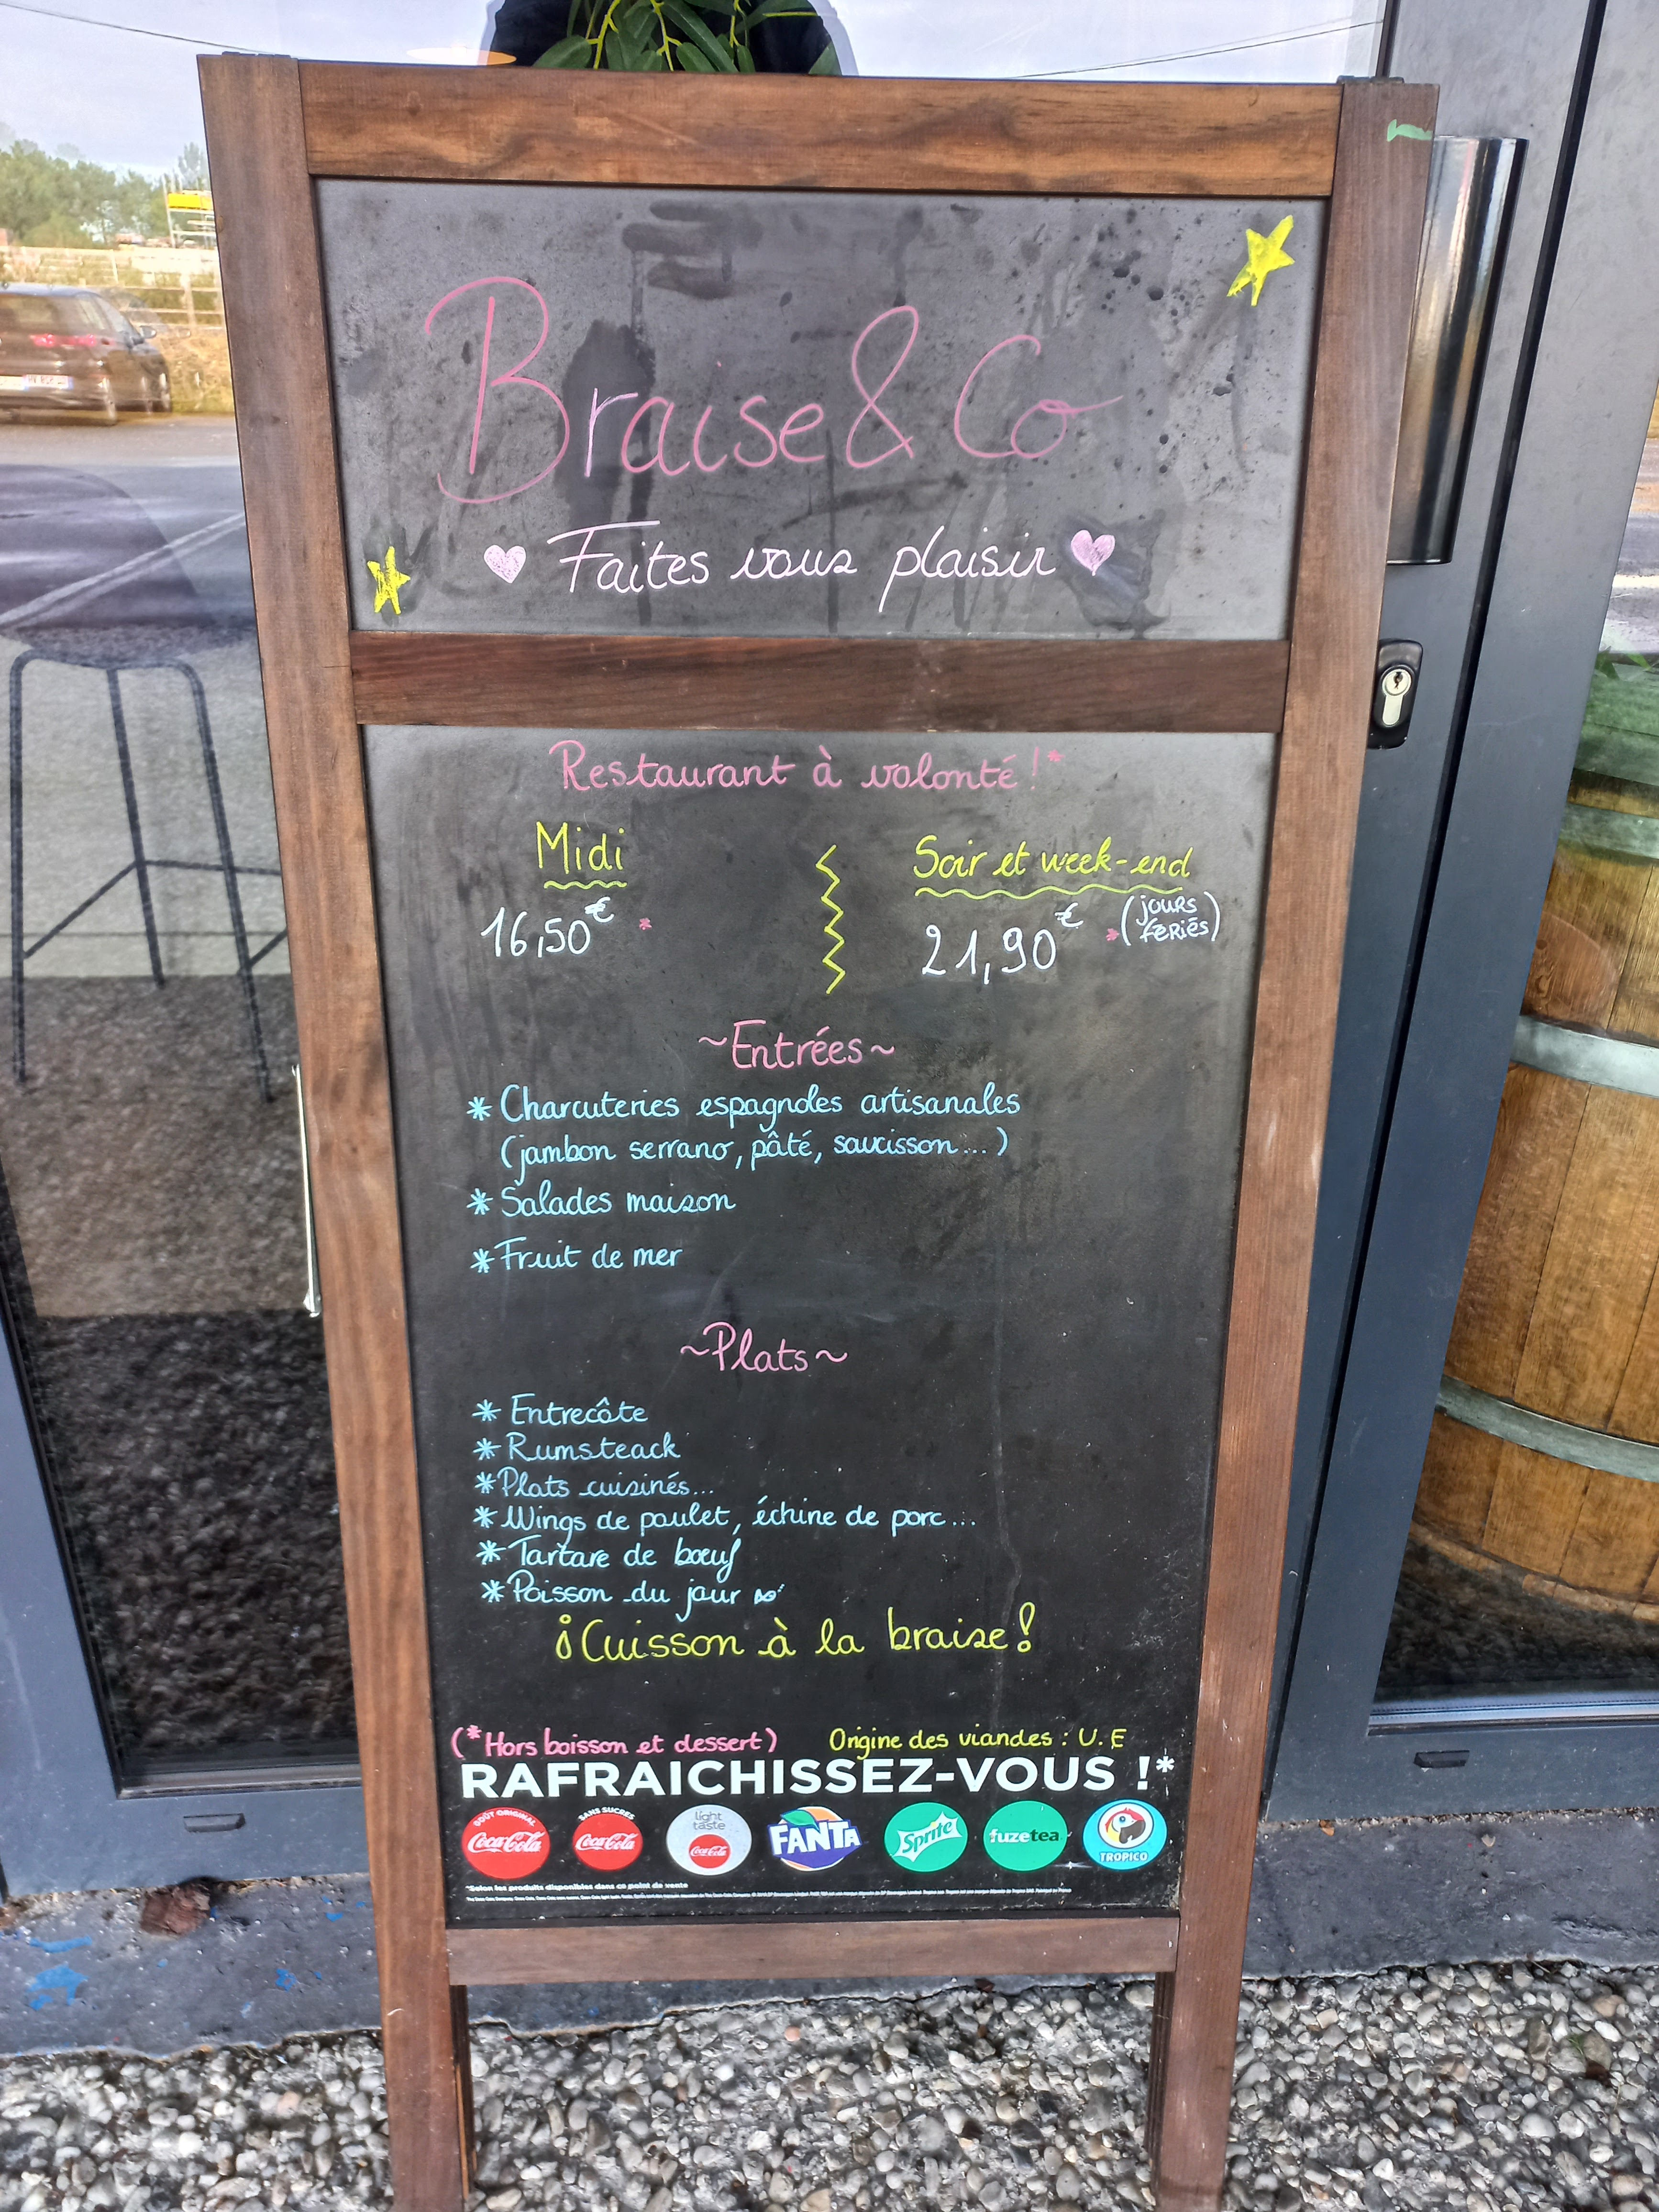 Braise & Co
Faites vous plaisir
Restaurant à volonté !*
Midi
16,50€ *
Soir et week-end
21,90€ * (jours fériés)
~Entrées~
* Charcuteries espagnoles artisanales
(jambon serrano, pâté, saucisson...)
* Salades maison
* Fruit de mer
~Plats~
* Entrecôte
* Rumsteack
* Plats cuisinés...
* Wings de poulet, échine de porc...
* Tartare de bœuf
* Poisson du jour
¡Cuisson à la braise!
(*Hors boisson et dessert) Origine des viandes : U.E
RAFRAICHISSEZ-VOUS !*
GOÛT ORIGINAL Coca-Cola
SANS SUCRES Coca-Cola
light taste Coca-Cola
FANTA
Sprite
fuzetea
TROPICO
*Selon les produits disponibles dans ce point de vente